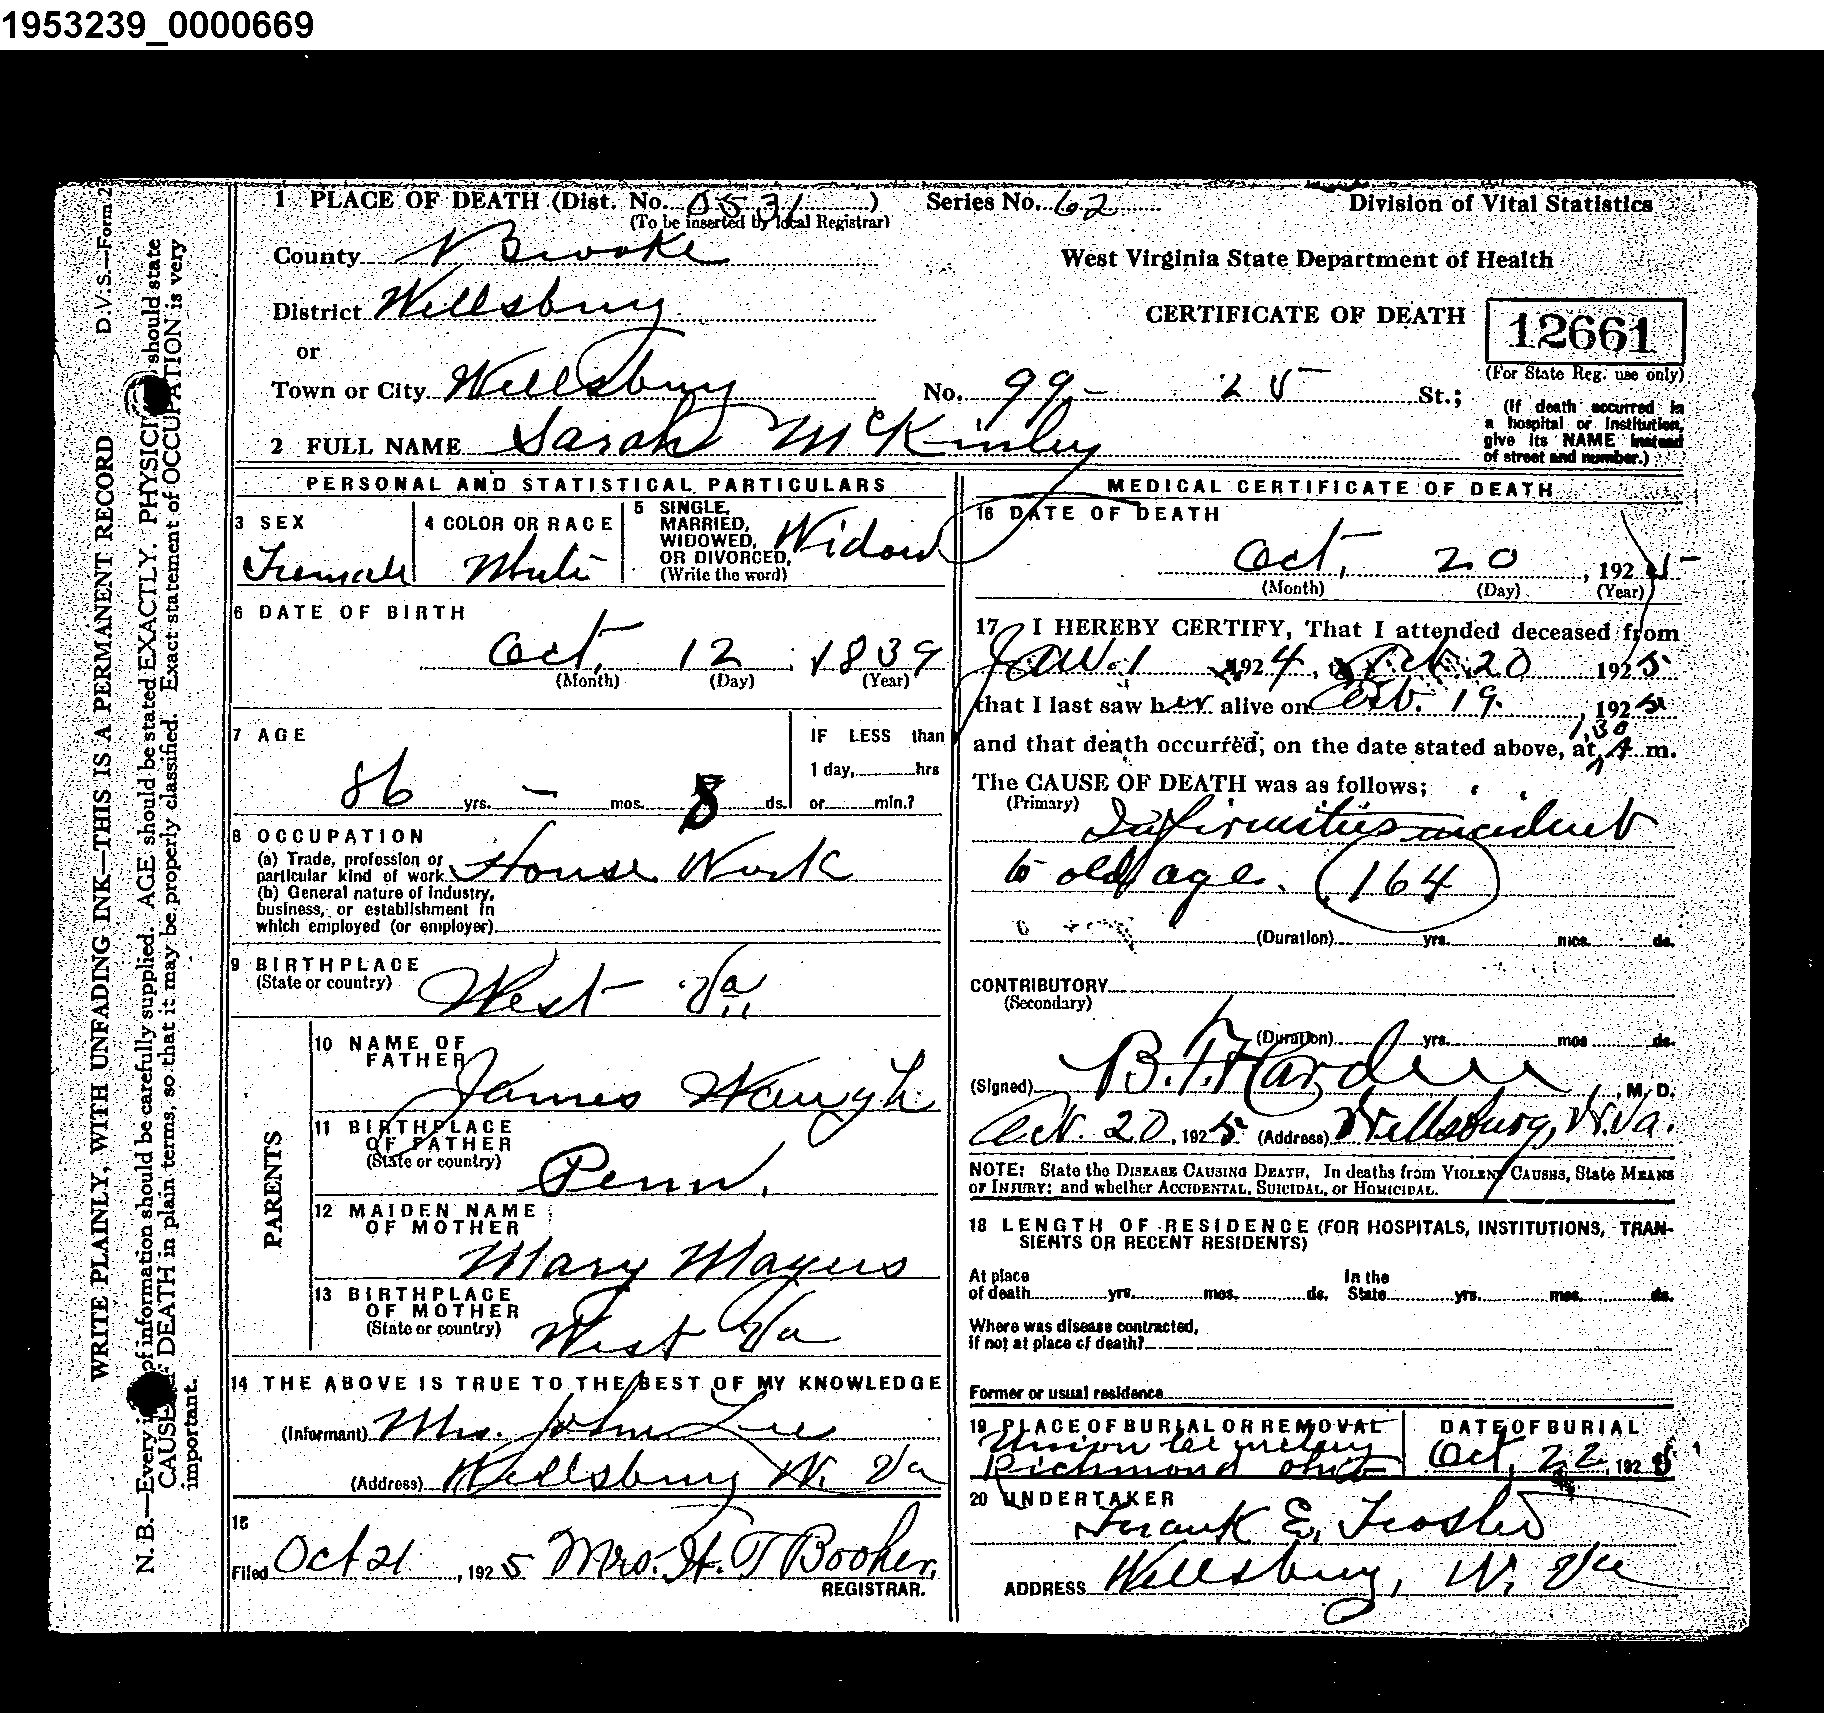 1953239_0000669
1 PLACE OF DEATH (Dist. No. 0531) Series No. 62 Division of Vital Statistics
(To be inserted by local Registrar)
County Brooke West Virginia State Department of Health
District Wellsburg CERTIFICATE OF DEATH 12661
or (For State Reg. use only)
Town or City Wellsburg No. 99 - 25 St.;
(If death occurred in
a hospital or institution,
give its NAME instead
of street and number.)
2 FULL NAME Sarah McKinley
PERSONAL AND STATISTICAL PARTICULARS
3 SEX
Female
4 COLOR OR RACE
White
5 SINGLE,
MARRIED,
WIDOWED,
OR DIVORCED,
(Write the word)
Widow
6 DATE OF BIRTH
Oct. 12 1839
(Month) (Day) (Year)
7 AGE
86 yrs. - mos. 8 ds.
IF LESS than
1 day, hrs
or min.?
8 OCCUPATION
(a) Trade, profession or
particular kind of work House Work
(b) General nature of industry,
business, or establishment in
which employed (or employer)
9 BIRTHPLACE
(State or country) West Va.
PARENTS
10 NAME OF
FATHER
James Waugh
11 BIRTHPLACE
OF FATHER
(State or country) Penn.
12 MAIDEN NAME
OF MOTHER
Mary Mayers
13 BIRTHPLACE
OF MOTHER
(State or country) West Va
14 THE ABOVE IS TRUE TO THE BEST OF MY KNOWLEDGE
(Informant) Mrs. John Lee
(Address) Wellsburg W. Va
15
Filed Oct 21, 1925 Mrs. H. T Booher,
REGISTRAR.
MEDICAL CERTIFICATE OF DEATH
16 DATE OF DEATH
Oct. 20, 1925
(Month) (Day) (Year)
17 I HEREBY CERTIFY, That I attended deceased from
Jan. 1 1924, to Oct. 20 1925
that I last saw her alive on Oct. 19, 1925
1,30
and that death occurred, on the date stated above, at A m.
The CAUSE OF DEATH was as follows;
(Primary) Infirmities incident
to old age. 164
(Duration) yrs. mos. ds.
CONTRIBUTORY
(Secondary)
(Duration) yrs. mos ds.
(Signed) B. F. Harden, M. D.
Oct. 20, 1925 (Address) Wellsburg, W. Va.
NOTE: State the DISEASE CAUSING DEATH, In deaths from VIOLENT CAUSES, State MEANS
OF INJURY; and whether ACCIDENTAL, SUICIDAL, or HOMICIDAL.
18 LENGTH OF RESIDENCE (FOR HOSPITALS, INSTITUTIONS, TRAN-
SIENTS OR RECENT RESIDENTS)
At place In the
of death yrs. mos. ds. State yrs. mos. ds.
Where was disease contracted,
if not at place of death?
Former or usual residence
19 PLACE OF BURIAL OR REMOVAL
Union Cemetery
Richmond Ohio
DATE OF BURIAL
Oct, 22, 1925
20 UNDERTAKER
Frank E. Foster
ADDRESS Wellsburg, W. Va
D.V.S.—Form 2
WRITE PLAINLY, WITH UNFADING INK—THIS IS A PERMANENT RECORD
N. B.—Every of information should be carefully supplied. AGE should be stated EXACTLY. PHYSICI should state
CAUSE DEATH in plain terms, so that it may be properly classified. Exact statement of OCCUPATION is very
important.